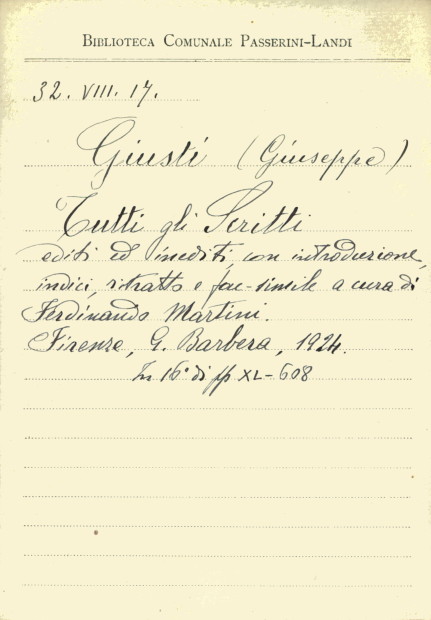 BIBLIOTECA COMUNALE PASSERINI-LANDI
32. VIII. 17.
Giusti (Giuseppe)
Tutti gli Scritti
editi ed inediti con introduzione,
indici, ritratto e fac-simile a cura di
Ferdinando Martini.
Firenze, G. Barbera, 1924.
In 16° di pp XL-608